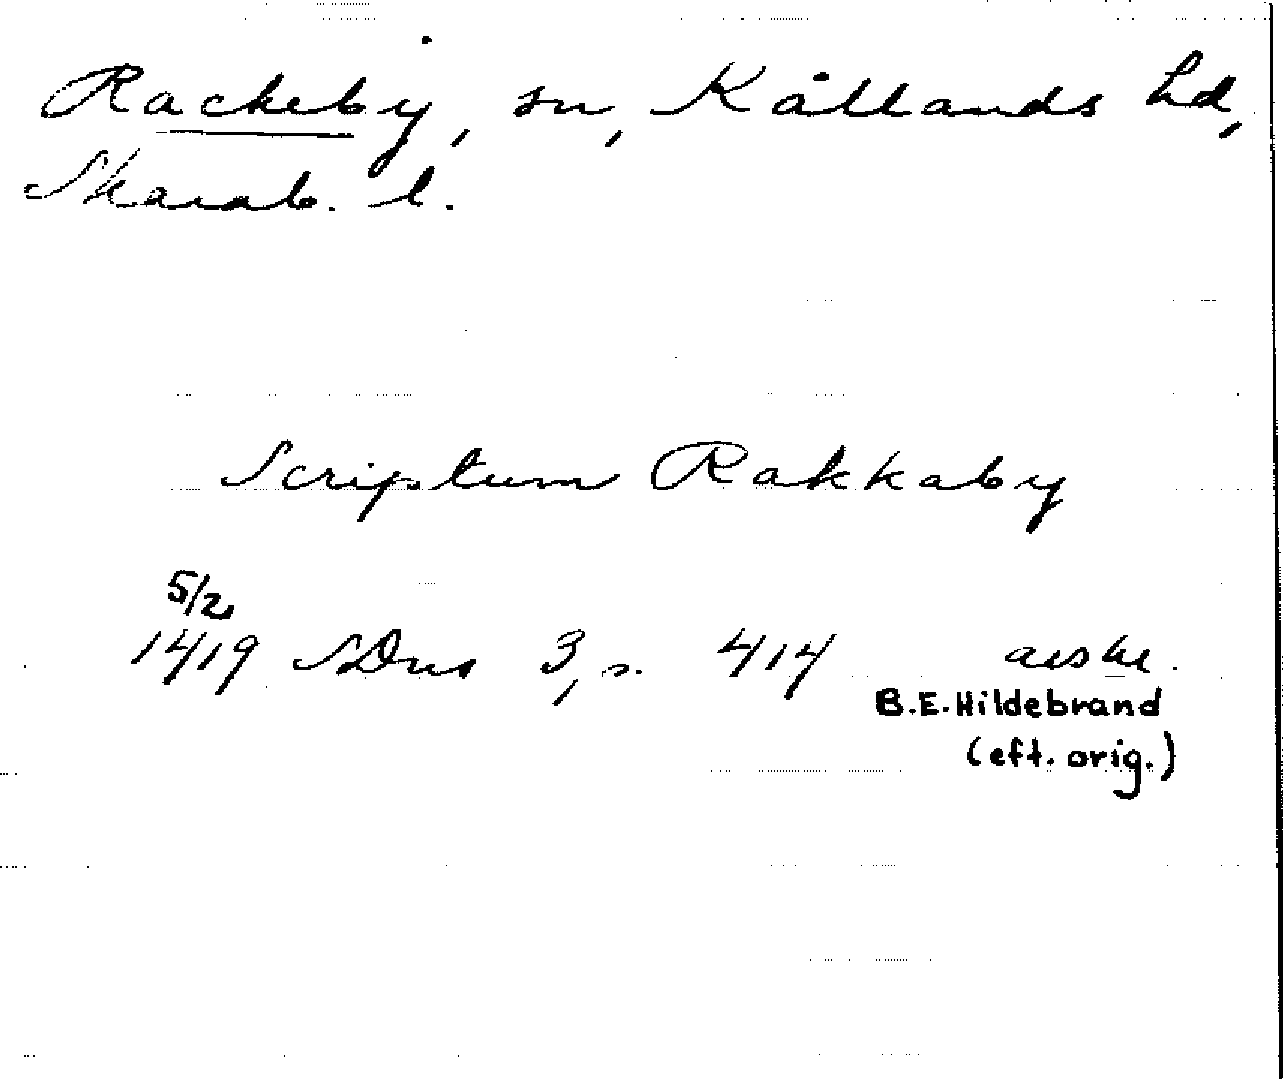 Rackeby, sn, Kållands hd,
Skarab. l.
Scriptum Rakkaby
5/2
1419 SDns 3, s. 414
B.E. Hildebrand
(eft. orig.)